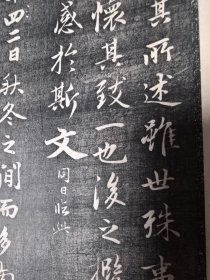 其所述雖世殊事
懷其致一也後之攬
感於斯文
同日臨
二日秋冬之間而多